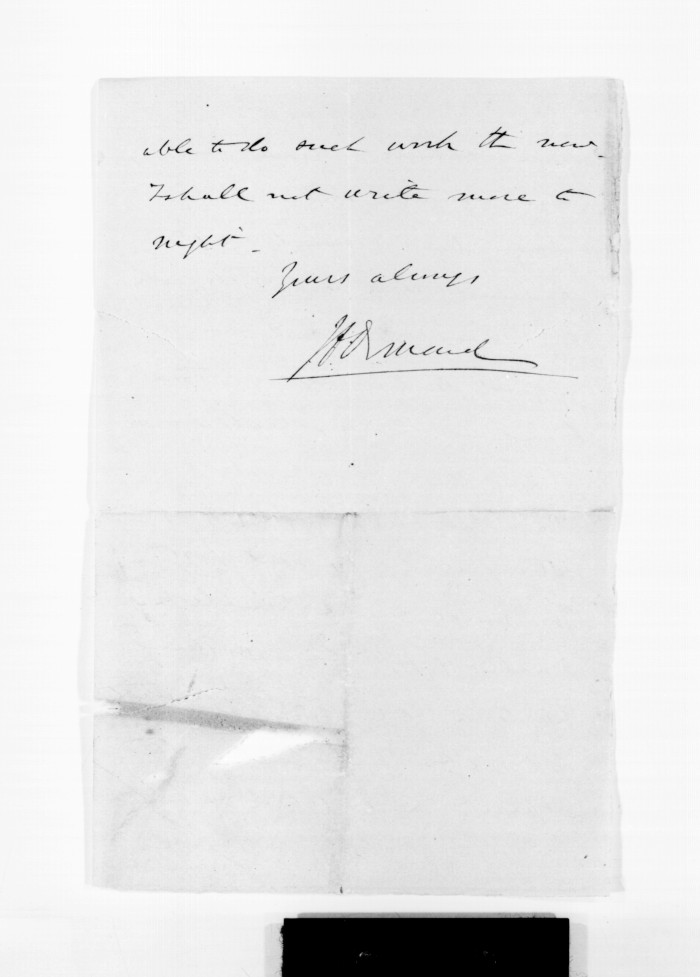 able to do such work th now.
I shall not write more to
night.
Yours always
JD Ormond